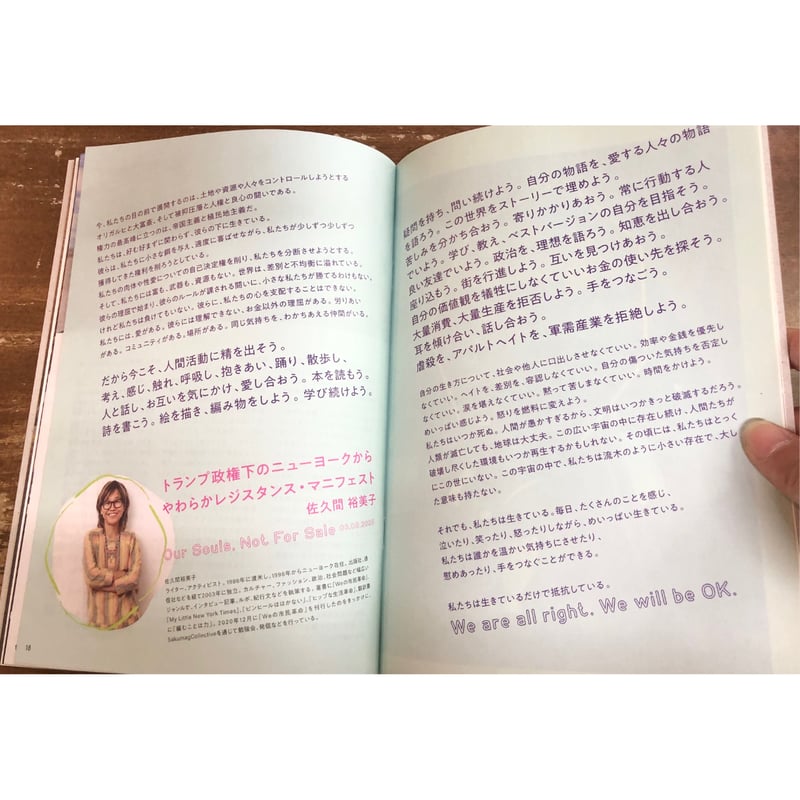 今、私たちの目の前で展開するのは、土地や資源や人々をコントロールしようとする
オリガルヒと大富豪、そして被抑圧層と人権と良心の闘いである。
権力の最高峰に立つのは、帝国主義と植民地主義だ。
私たちは、好む好まずに関わらず、彼らの下に生きている。
彼らは、私たちに小さな餌を与え、適度に喜ばせながら、私たちが少しずつ少しずつ
獲得してきた権利を削ろうとしている。
私たちの肉体や性愛についての自己決定権を削り、私たちを分断させようとする。
そして、私たちには富も、武器も、資源もない。世界は、差別と不均衡に溢れている。
彼らの理屈で始まり、彼らのルールが課される闘いに、小さな私たちが勝てるわけもない。
けれど私たちは負けてもいない。彼らに、私たちの心を支配することはできない。
私たちには、愛がある。彼らには理解できない、お金以外の理屈がある。労りあい
がある。コミュニティがある。場所がある。同じ気持ちを、わかちあえる仲間がいる。
だから今こそ、人間活動に精を出そう。
考え、感じ、触れ、呼吸し、抱きあい、踊り、散歩し、
人と話し、お互いを気にかけ、愛し合おう。本を読もう。
詩を書こう。絵を描き、編み物をしよう。学び続けよう。
トランプ政権下のニューヨークから
やわらかレジスタンス・マニフェスト
佐久間 裕美子
Our Souls. Not For Sale 03.08.2025
佐久間裕美子
ライター、アクティビスト。1996年に渡米し、1998年からニューヨーク在住。出版社、通
信社などを経て2003年に独立。カルチャー、ファッション、政治、社会問題など幅広い
ジャンルで、インタビュー記事、ルポ、紀行文などを執筆する。著書に「Weの市民革命」
「My Little New York Times」、「ピンヒールははかない」、「ヒップな生活革命」、翻訳書
に「編むことは力」。2020年12月に「Weの市民革命」を刊行したのをきっかけに、
SakumagCollectiveを通じて勉強会、発信などを行っている。
18
疑問を持ち、問い続けよう。自分の物語を、愛する人々の物語
を語ろう。この世界をストーリーで埋めよう。
苦しみを分かち合おう。寄りかかりあおう。常に行動する人
でいよう。学び、教え、ベストバージョンの自分を目指そう。
良い友達でいよう。政治を、理想を語ろう。知恵を出し合おう。
座り込もう。街を行進しよう。互いを見つけあおう。
自分の価値観を犠牲にしなくていいお金の使い先を探そう。
大量消費、大量生産を拒否しよう。手をつなごう。
耳を傾け合い、話し合おう。
虐殺を、アパルトヘイトを、軍需産業を拒絶しよう。
自分の生き方について、社会や他人に口出しさせなくていい。効率や金銭を優先し
なくていい。ヘイトを、差別を、容認しなくていい。自分の傷ついた気持ちを否定し
なくていい。涙を堪えなくていい。黙って苦しまなくていい。時間をかけよう。
めいっぱい感じよう。怒りを燃料に変えよう。
私たちはいつか死ぬ。人間が愚かすぎるから、文明はいつかきっと破滅するだろう。
人類が滅亡しても、地球は大丈夫。この広い宇宙の中に存在し続け、人間たちが
破壊し尽くした環境もいつか再生するかもしれない。その頃には、私たちはとっく
にこの世にいない。この宇宙の中で、私たちは流木のように小さい存在で、大し
た意味も持たない。
それでも、私たちは生きている。毎日、たくさんのことを感じ、
泣いたり、笑ったり、怒ったりしながら、めいっぱい生きている。
私たちは誰かを温かい気持ちにさせたり、
慰めあったり、手をつなぐことができる。
私たちは生きているだけで抵抗している。
We are all right. We will be OK.